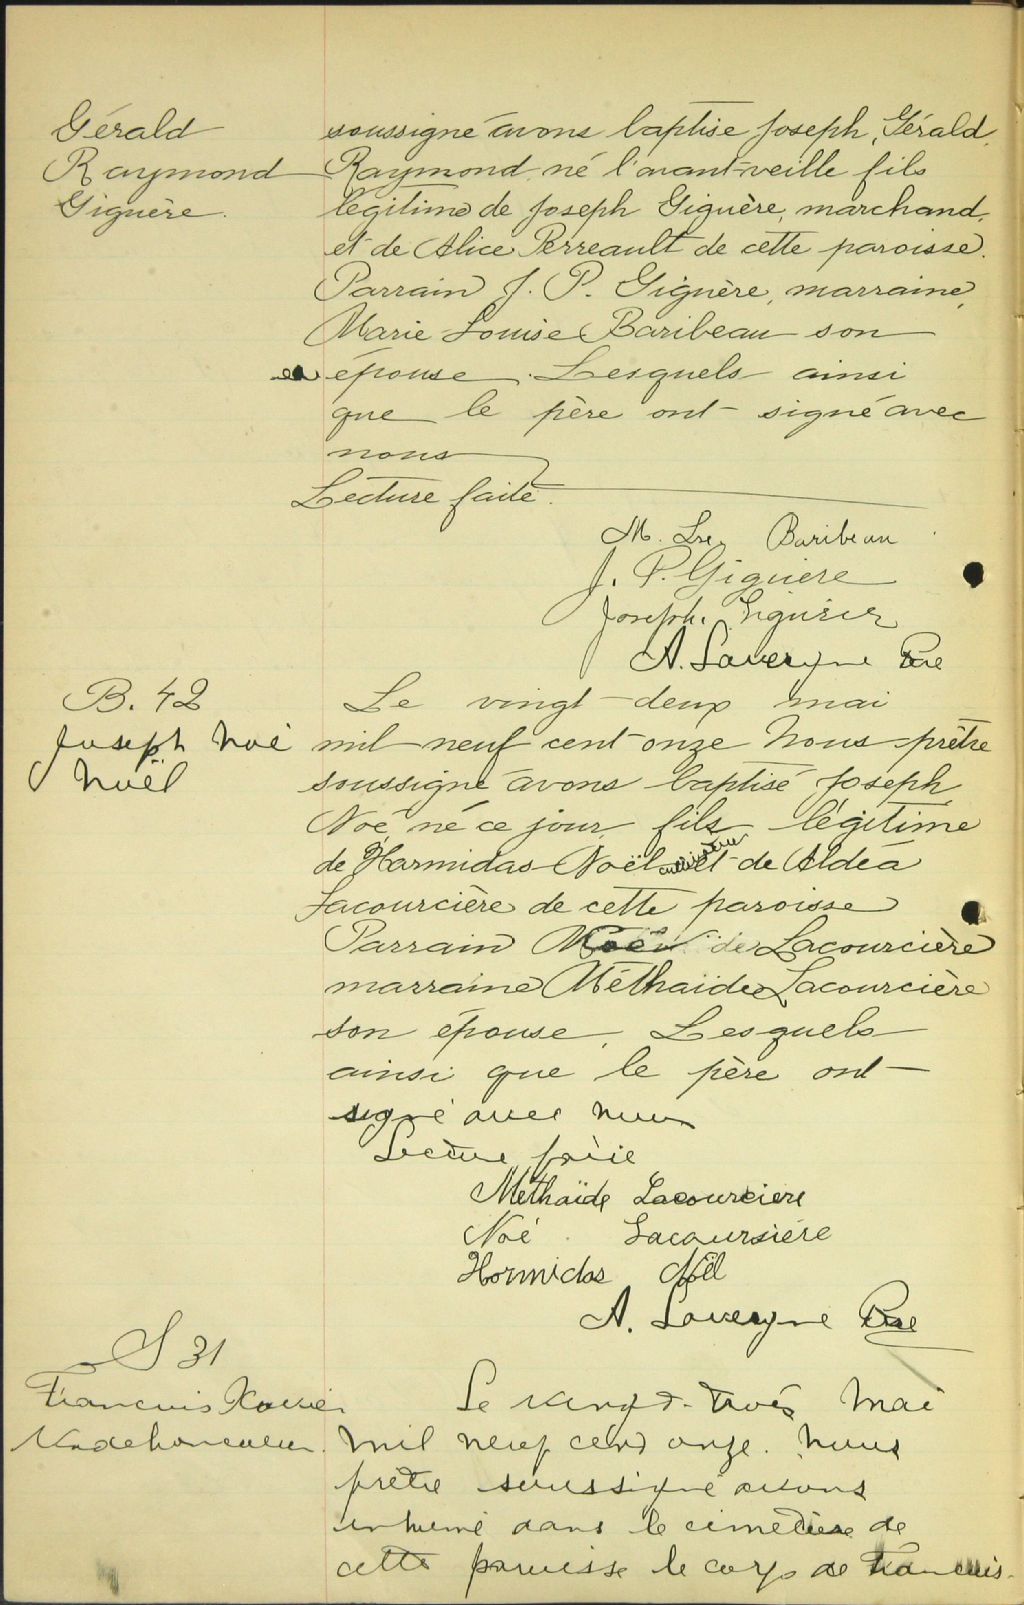 Gérald
Raymond
Giguère.
soussigné avons baptisé Joseph, Gérald,
Raymond né l'avant-veille fils
légitime de Joseph Giguère, marchand,
et de Alice Perreault de cette paroisse.
Parrain J. P. Giguère, marraine,
Marie Louise Baribeau son
épouse. Lesquels ainsi
que le père ont signé avec
nous
Lecture faite.
M. Lse Baribeau
J. P. Giguere
Joseph Giguère
A. Lavergne Ptre
B. 42
Joseph Noé
Noël
Le vingt-deux mai
mil neuf cent onze Nous prêtre
soussigné avons baptisé Joseph
Noé, né ce jour fils légitime
de Harmidas Noël cultivateur et de Aldéa
Lacourcière de cette paroisse
Parrain Noé de Lacourcière
marraine Méthaïde Lacourcière
son épouse. Lesquels
ainsi que le père ont
signé avec nous
Lecture faite
Méthaïde Lacourciere
Noé Lacoursière
Hormidas Noël
A. Lavergne Ptre
S 31
Francois Xavier
Le vingt-trois mai
mil neuf cent onze. nous
prêtre soussigné avons
inhumé dans le cimetière de
cette paroisse le corps de Francois-